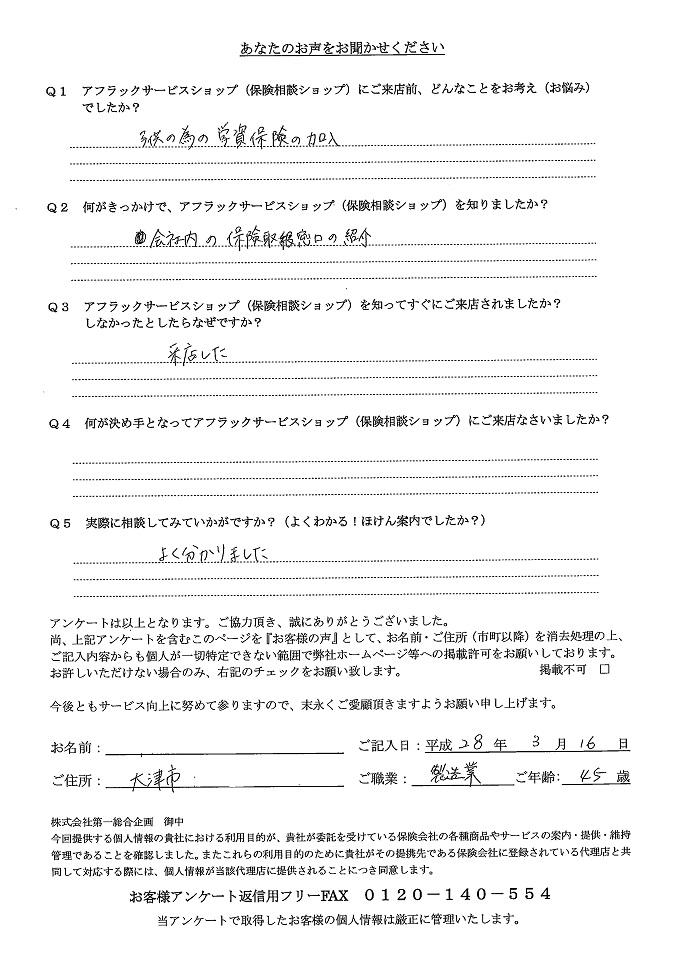 あなたのお声をお聞かせください
Q1 アフラックサービスショップ(保険相談ショップ)にご来店前、どんなことをお考え(お悩み)
でしたか?
子供の為の学資保険の加入
Q2 何がきっかけで、アフラックサービスショップ(保険相談ショップ)を知りましたか?
会社内の保険取扱窓口の紹介
Q3 アフラックサービスショップ(保険相談ショップ)を知ってすぐにご来店されましたか?
しなかったとしたらなぜですか?
来店した
Q4 何が決め手となってアフラックサービスショップ(保険相談ショップ)にご来店なさいましたか?
Q5 実際に相談してみていかがですか?(よくわかる!ほけん案内でしたか?)
よく分かりました
アンケートは以上となります。ご協力頂き、誠にありがとうございました。
尚、上記アンケートを含むこのページを『お客様の声』として、お名前・ご住所(市町以降)を消去処理の上、
ご記入内容からも個人が一切特定できない範囲で弊社ホームページ等への掲載許可をお願いしております。
お許しいただけない場合のみ、右記のチェックをお願い致します。 掲載不可 □
今後ともサービス向上に努めて参りますので、末永くご愛顧頂きますようお願い申し上げます。
お名前: ご記入日:平成 28 年 3 月 16 日
ご住所: 大津市 ご職業: 製造業 ご年齢: 45 歳
株式会社第一総合企画 御中
今回提供する個人情報の貴社における利用目的が、貴社が委託を受けている保険会社の各種商品やサービスの案内・提供・維持
管理であることを確認しました。またこれらの利用目的のために貴社がその提携先である保険会社に登録されている代理店と共
同して対応する際には、個人情報が当該代理店に提供されることにつき同意します。
お客様アンケート返信用フリーFAX 0120-140-554
当アンケートで取得したお客様の個人情報は厳正に管理いたします。